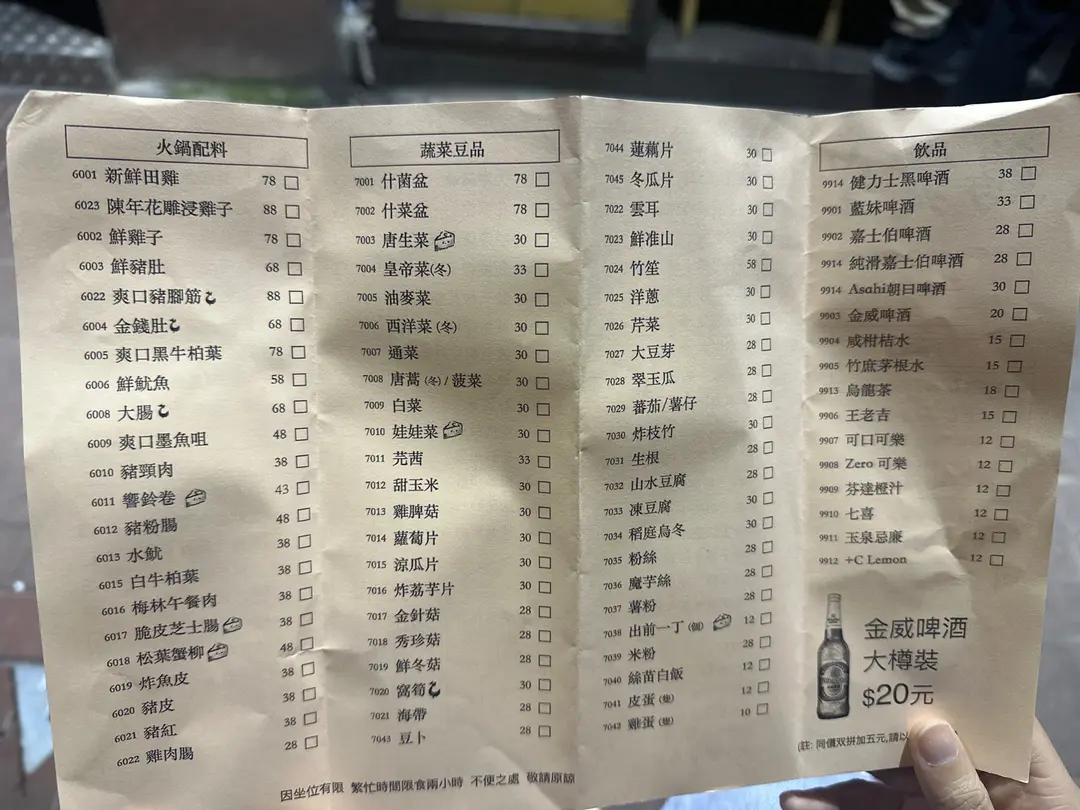 火鍋配料
6001 新鮮田雞 78
6023 陳年花雕浸雞子 88
6002 鮮雞子 78
6003 鮮豬肚 68
6022 爽口豬腳筋 88
6004 金錢肚 68
6005 爽口黑牛柏葉 78
6006 鮮魷魚 58
6008 大腸 68
6009 爽口墨魚咀 48
6010 豬頸肉 38
6011 響鈴卷 43
6012 豬粉腸 48
6013 水魷 38
6015 白牛柏葉 38
6016 梅林午餐肉 38
6017 脆皮芝士腸 38
6018 松葉蟹柳 48
6019 炸魚皮 38
6020 豬皮 38
6021 豬紅 38
6022 雞肉腸 28
蔬菜豆品
7001 什菌盆 78
7002 什菜盆 78
7003 唐生菜 30
7004 皇帝菜(冬) 33
7005 油麥菜 30
7006 西洋菜 (冬) 30
7007 通菜 30
7008 唐蒿 (冬) / 菠菜 30
7009 白菜 30
7010 娃娃菜 30
7011 芫茜 33
7012 甜玉米 30
7013 雞脾菇 30
7014 蘿蔔片 30
7015 涼瓜片 30
7016 炸荔芋片 30
7017 金針菇 28
7018 秀珍菇 28
7019 鮮冬菇 28
7020 窩筍 30
7021 海帶 28
7043 豆卜 28
7044 蓮藕片 30
7045 冬瓜片 30
7022 雲耳 30
7023 鮮准山 30
7024 竹笙 58
7025 洋蔥 30
7026 芹菜 30
7027 大豆芽 28
7028 翠玉瓜 28
7029 蕃茄/薯仔 28
7030 炸枝竹 30
7031 生根 28
7032 山水豆腐 28
7033 凍豆腐 30
7034 稻庭烏冬 30
7035 粉絲 28
7036 魔芋絲 28
7037 薯粉 28
7038 出前一丁 (個) 12
7039 米粉 28
7040 絲苗白飯 12
7041 皮蛋 (隻) 12
7042 雞蛋 (隻) 10
飲品
9914 健力士黑啤酒 38
9901 藍妹啤酒 33
9902 嘉士伯啤酒 28
9914 純滑嘉士伯啤酒 28
9914 Asahi朝日啤酒 30
9903 金威啤酒 20
9904 咸柑桔水 15
9905 竹庶茅根水 15
9913 烏龍茶 18
9906 王老吉 15
9907 可口可樂 12
9908 Zero 可樂 12
9909 芬達橙汁 12
9910 七喜 12
9911 玉泉忌廉 12
9912 +C Lemon 12
金威啤酒
大樽裝
$20元
(註: 同價双拼加五元,請以
因坐位有限 繁忙時間限食兩小時 不便之處 敬請原諒